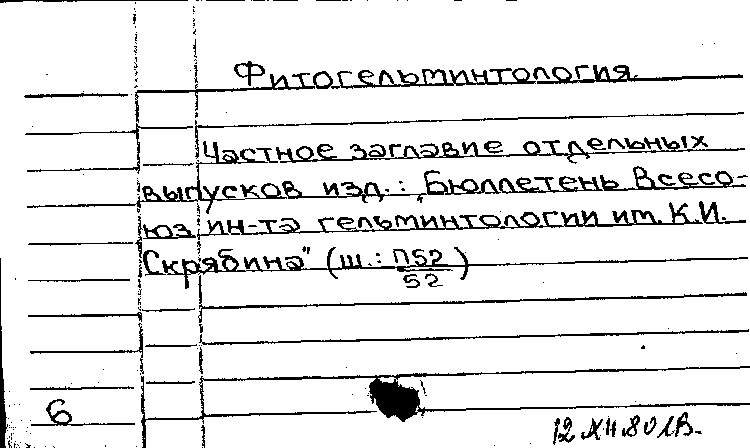 Фитогельминтология.
Частное заглавие отдельных
выпусков изд.: „Бюллетень Всесо-
юз ин-та гельминтологии им. К.И.
Скрябина" (ш.: П52/52)
6
12.XII.80